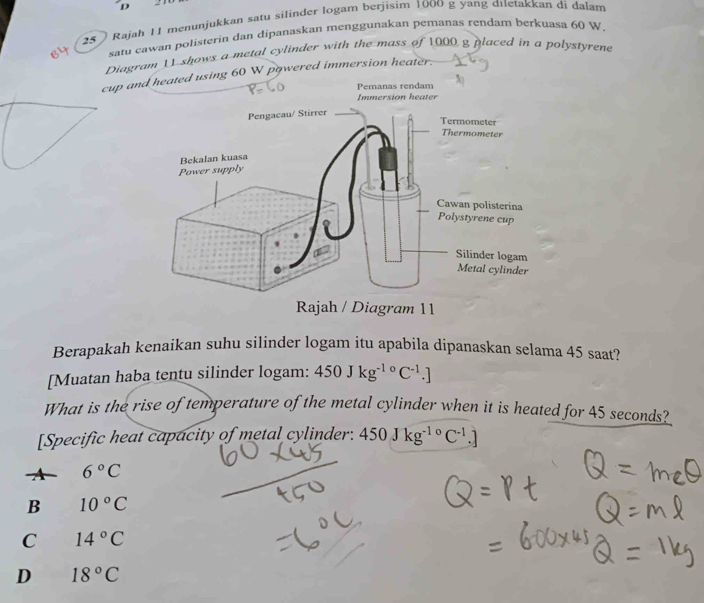 D
25 Rajah 11 menunjukkan satu silinder logam berjisim 1000 g yang diletakkan di dalam
satu cawan polisterin dan dipanaskan menggunakan pemanas rendam berkuasa 60 W.
Diagram 11 shows a metal cylinder with the mass of 1000 g placed in a polystyrene
cup and heated using 60 W powered immersion heater.
P=60
Pemanas rendam
Immersion heater
Pengacau/ Stirrer
Termometer
Thermometer
Bekalan kuasa
Power supply
Cawan polisterina
Polystyrene cup
Silinder logam
Metal cylinder
Rajah / Diagram 11
Berapakah kenaikan suhu silinder logam itu apabila dipanaskan selama 45 saat?
[Muatan haba tentu silinder logam: 450 J kg⁻¹ °C⁻¹.]
What is the rise of temperature of the metal cylinder when it is heated for 45 seconds?
[Specific heat capacity of metal cylinder: 450 J kg⁻¹ °C⁻¹.]
A 6 °C
B 10 °C
C 14 °C
D 18 °C
60 x 45
450
=6°C
Q = Pt
= 600x45
Q = mcθ
Q = ml
Q = 1kg